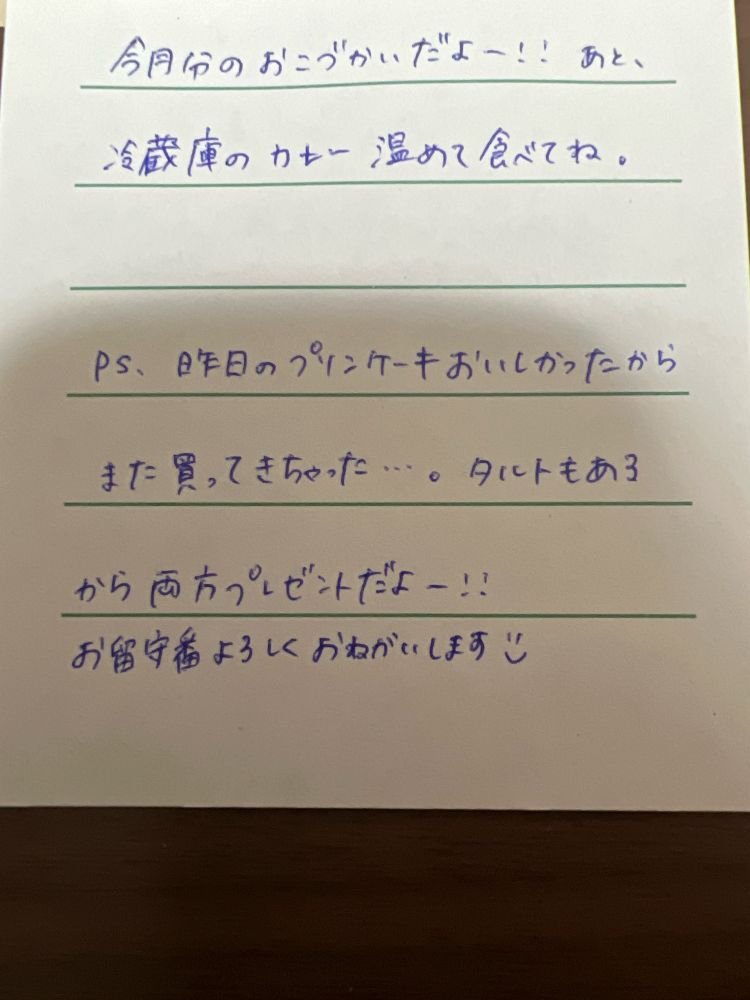 今月分のおこづかいだよー!! あと、
冷蔵庫のカレー 温めて食べてね。
PS、昨日のプリンケーキおいしかったから
また買ってきちゃった…。タルトもある
から両方プレゼントだよー!!
お留守番よろしくおねがいします